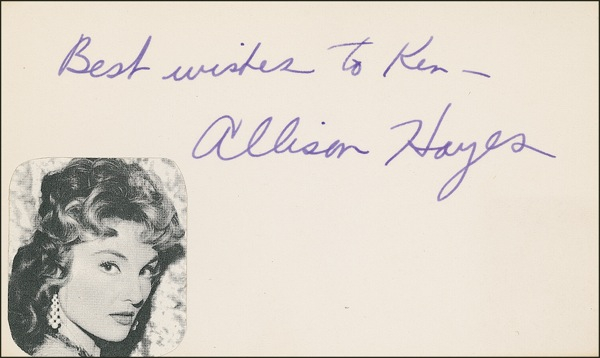 Best wishes to Ken —
Allison Hayes